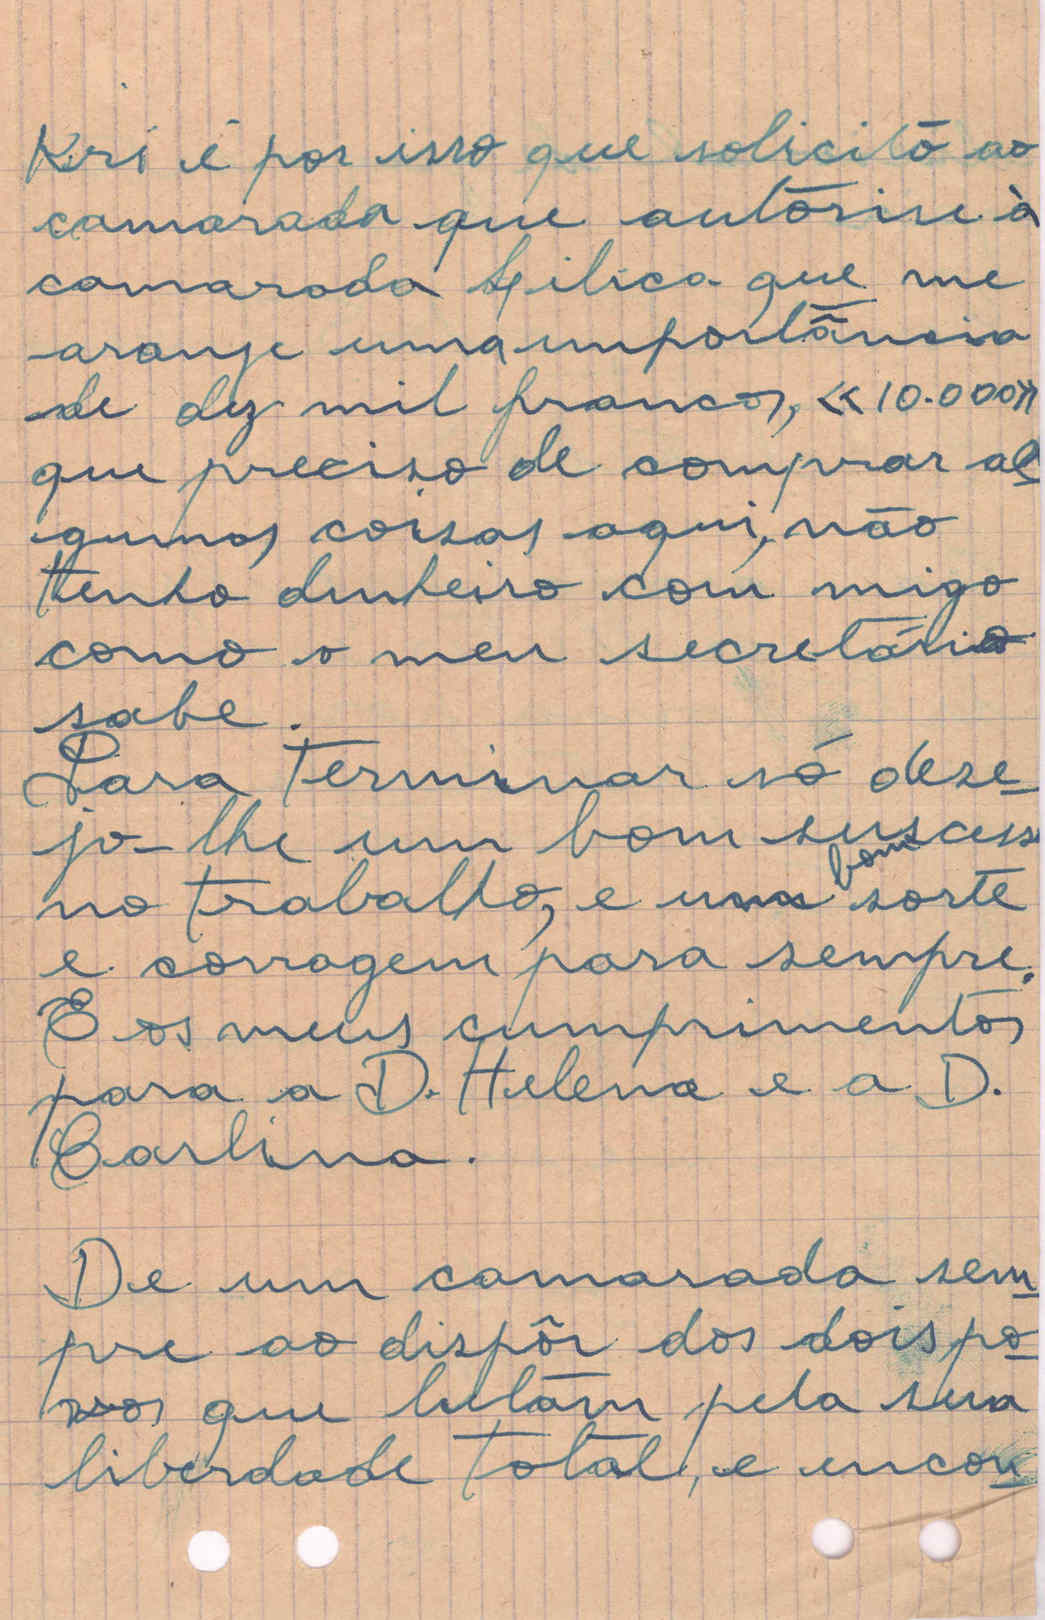 Kri é por isso que solicito ao
camarada que autorise à
camarada que me
aranje uma importância
de dez mil francos, «10.000»
que preciso de comprar al
gumas coisas aqui, não
tenho dinheiro com migo
como o meu secretário
sabe.
Para terminar só dese-
jo-lhe um bom suscesso
no trabalho, e uma bom sorte
e corragem para sempre.
E os meus cumprimentos
para a D. Helena e a D.
Carlina.
De um camarada sem
pre ao dispôr dos dois po
vos que lutam pela sua
liberdade total, e encon